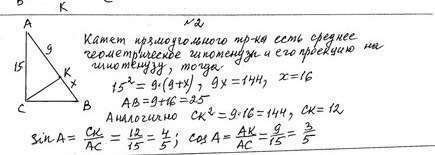 К
№2
А
Катет прямоугольного тр-ка есть среднее
геометрическое гипотенузы и его проекцию на
гипотенузу, тогда
15² = 9·(9+x), 9x=144, x=16
АВ=9+16=25
Аналогично СК²=9·16=144, СК=12
sin A = СК/АС = 12/15 = 4/5; cos A = АК/АС = 9/15 = 3/5
9
15
К
x
С
В